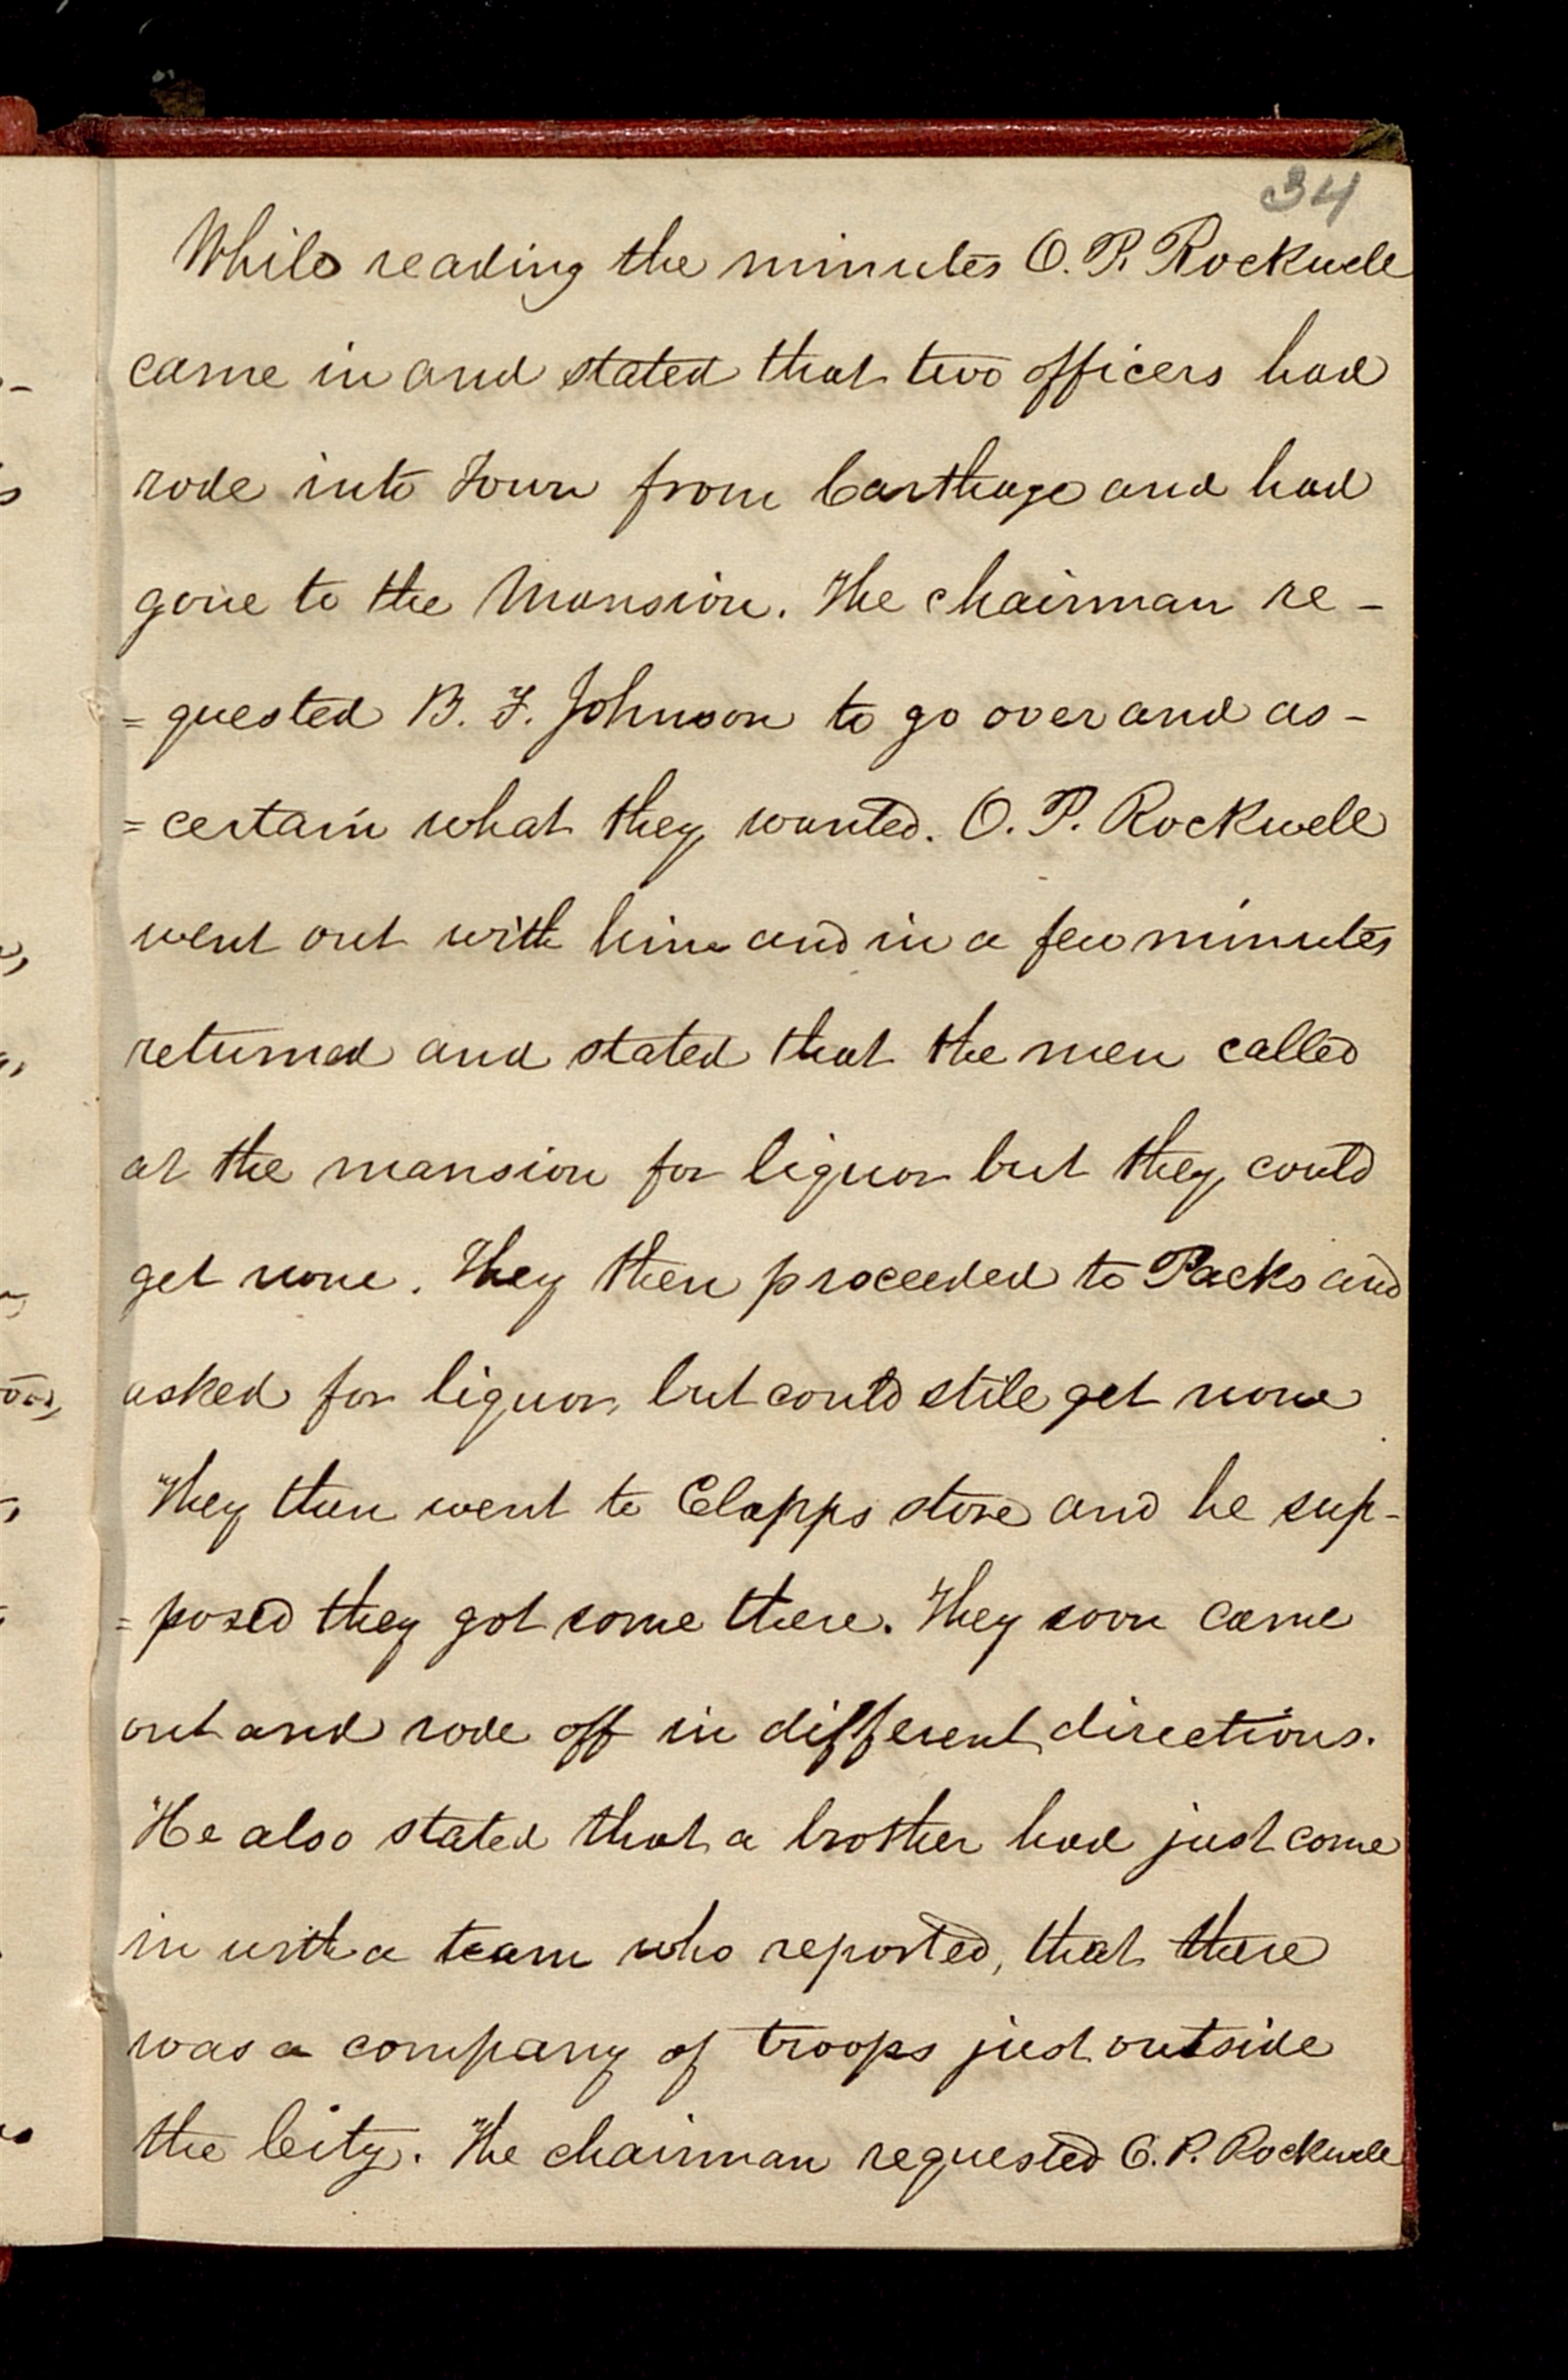 34
While reading the minutes O. P. Rockwell
came in and stated that two officers had
rode into Town from Carthage and had
gone to the Mansion. The chairman re-
=quested B. F. Johnson to go over and as-
=certain what they wanted. O. P. Rockwell
went out with him and in a few minutes
returned and stated that the men called
at the mansion for liquor but they could
get none. They then proceeded to Packs and
asked for liquor, but could still get none
They then went to Clapps store and he sup-
=posed they got some there. They soon came
out and rode off in different directions.
He also stated that a brother had just come
in with a team who reported, that there
was a company of troops just outside
the City. The chairman requested O. P. Rockwell